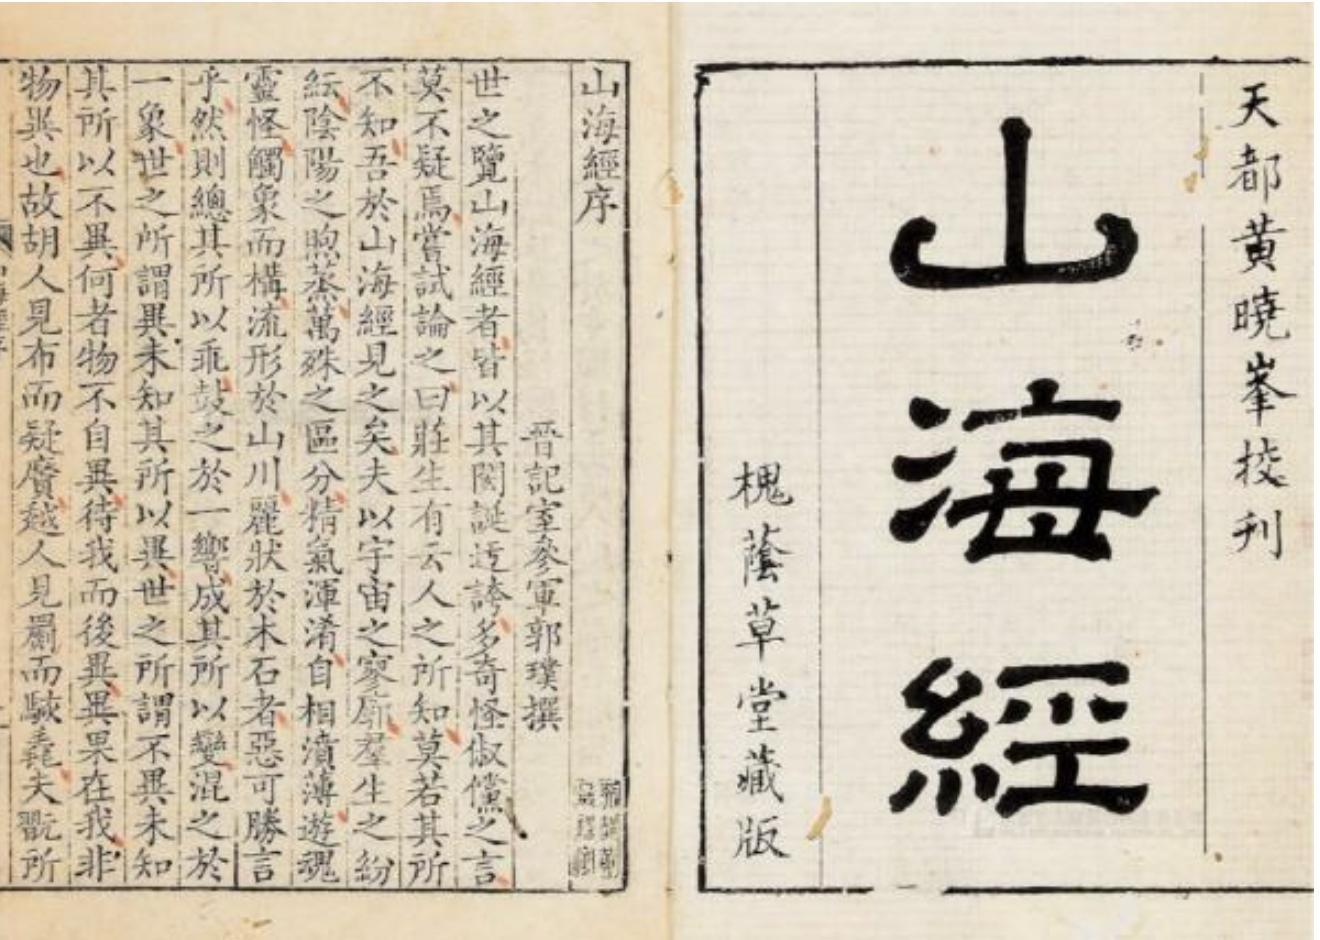 天都黄曉峯挍刋
山海經
槐蔭草堂藏版
山海經序
晉記室參軍郭璞撰
世之覽山海經者皆以其閎誕迃誇多奇怪俶儻之言
莫不疑焉嘗試論之曰莊生有云人之所知莫若其所
不知吾於山海經見之矣夫以宇宙之寥廓羣生之紛
紜陰陽之喣蒸萬殊之區分精氣渾淆自相濆薄遊魂
靈怪觸象而構流形於山川麗狀於木石者惡可勝言
乎然則總其所以乖鼓之於一響成其所以變混之於
一象世之所謂異未知其所以異世之所謂不異未知
其所以不異何者物不自異待我而後異異果在我非
物異也故胡人見布而疑黂越人見罽而駭毳夫翫所